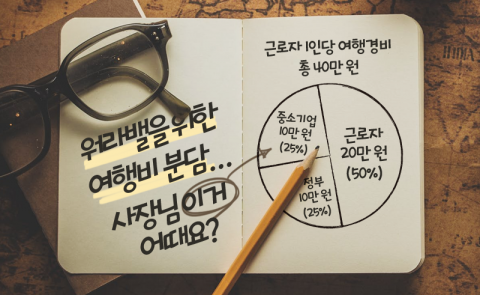 워라밸을 위한
여행비 분담...
사장님 이거
어때요?
근로자 1인당 여행경비
총 40만 원
중소기업
10만 원
(25%)
근로자
20만 원
(50%)
정부
10만 원
(25%)